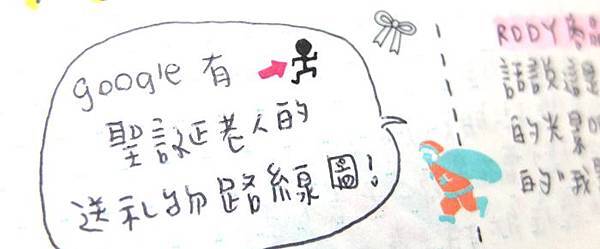 google 有
聖誕老人的
送礼物路線圖!
RODY
話說這是
的光景
的"我